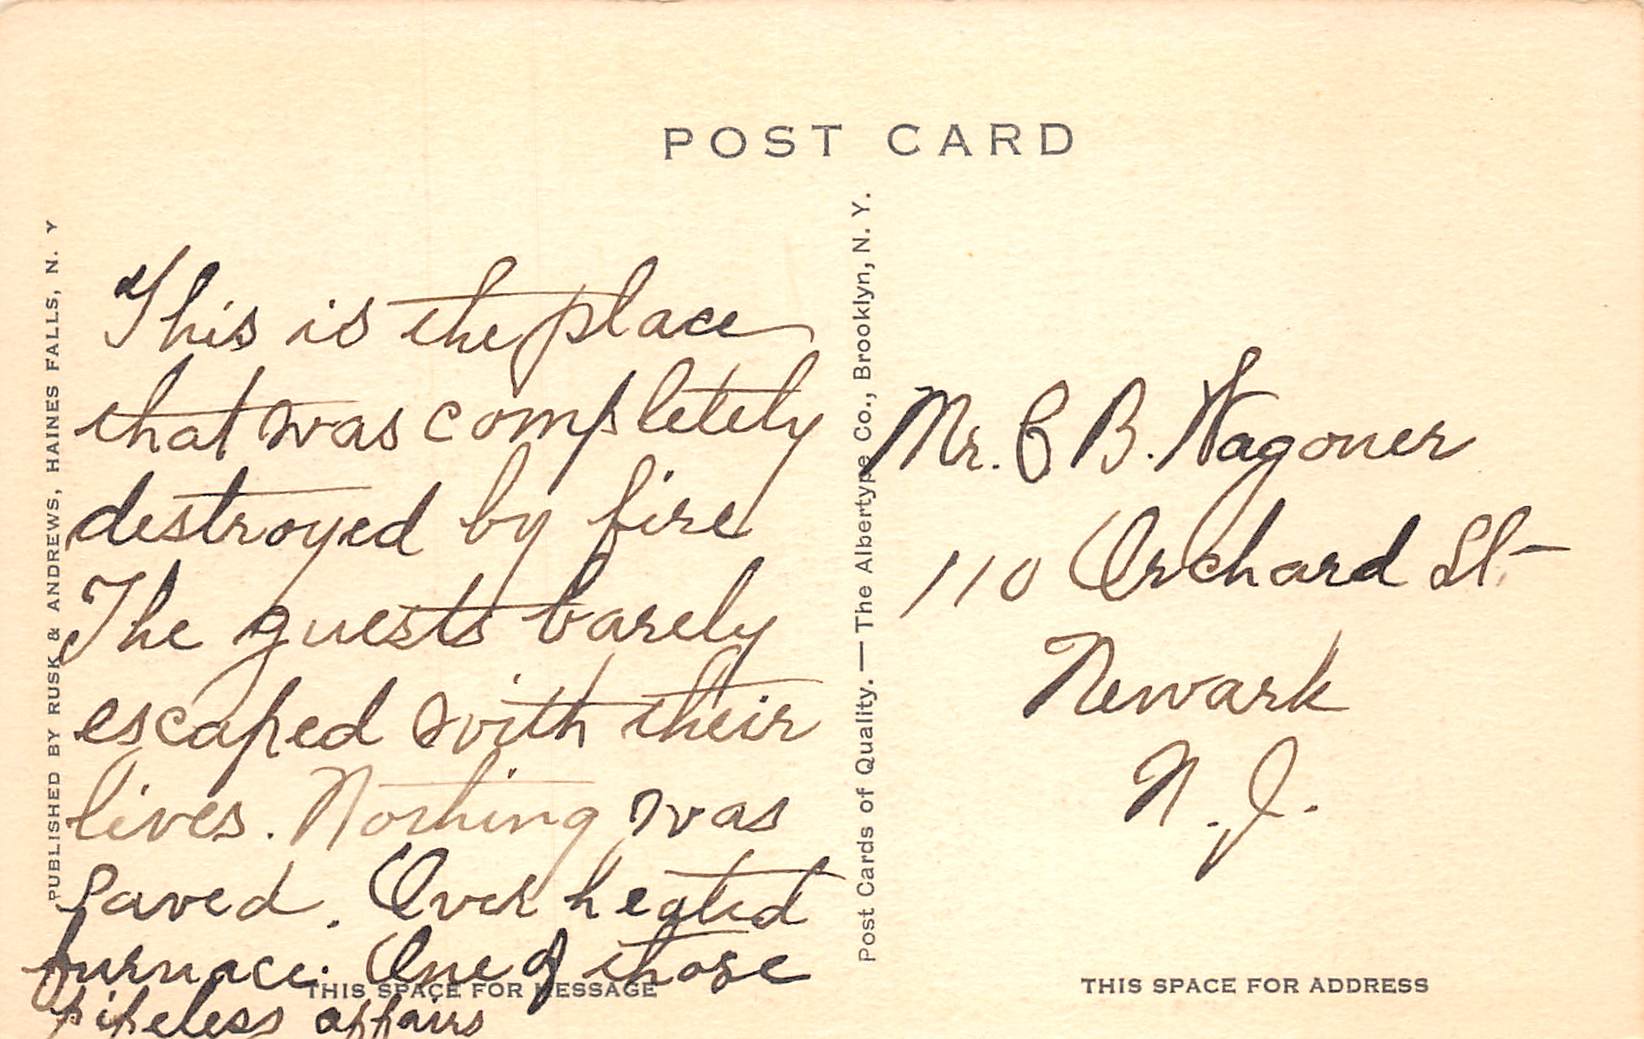 POST CARD
PUBLISHED BY RUSK & ANDREWS, HAINES FALLS, N. Y
This is the place
that was completely
destroyed by fire
The guests barely
escaped with their
lives. Nothing was
saved. Over heated
furnace. One of those
pipeless affairs
THIS SPACE FOR MESSAGE
Post Cards of Quality. — The Albertype Co., Brooklyn, N. Y.
Mr. C B. Wagoner
110 Orchard St
Newark
N. J.
THIS SPACE FOR ADDRESS